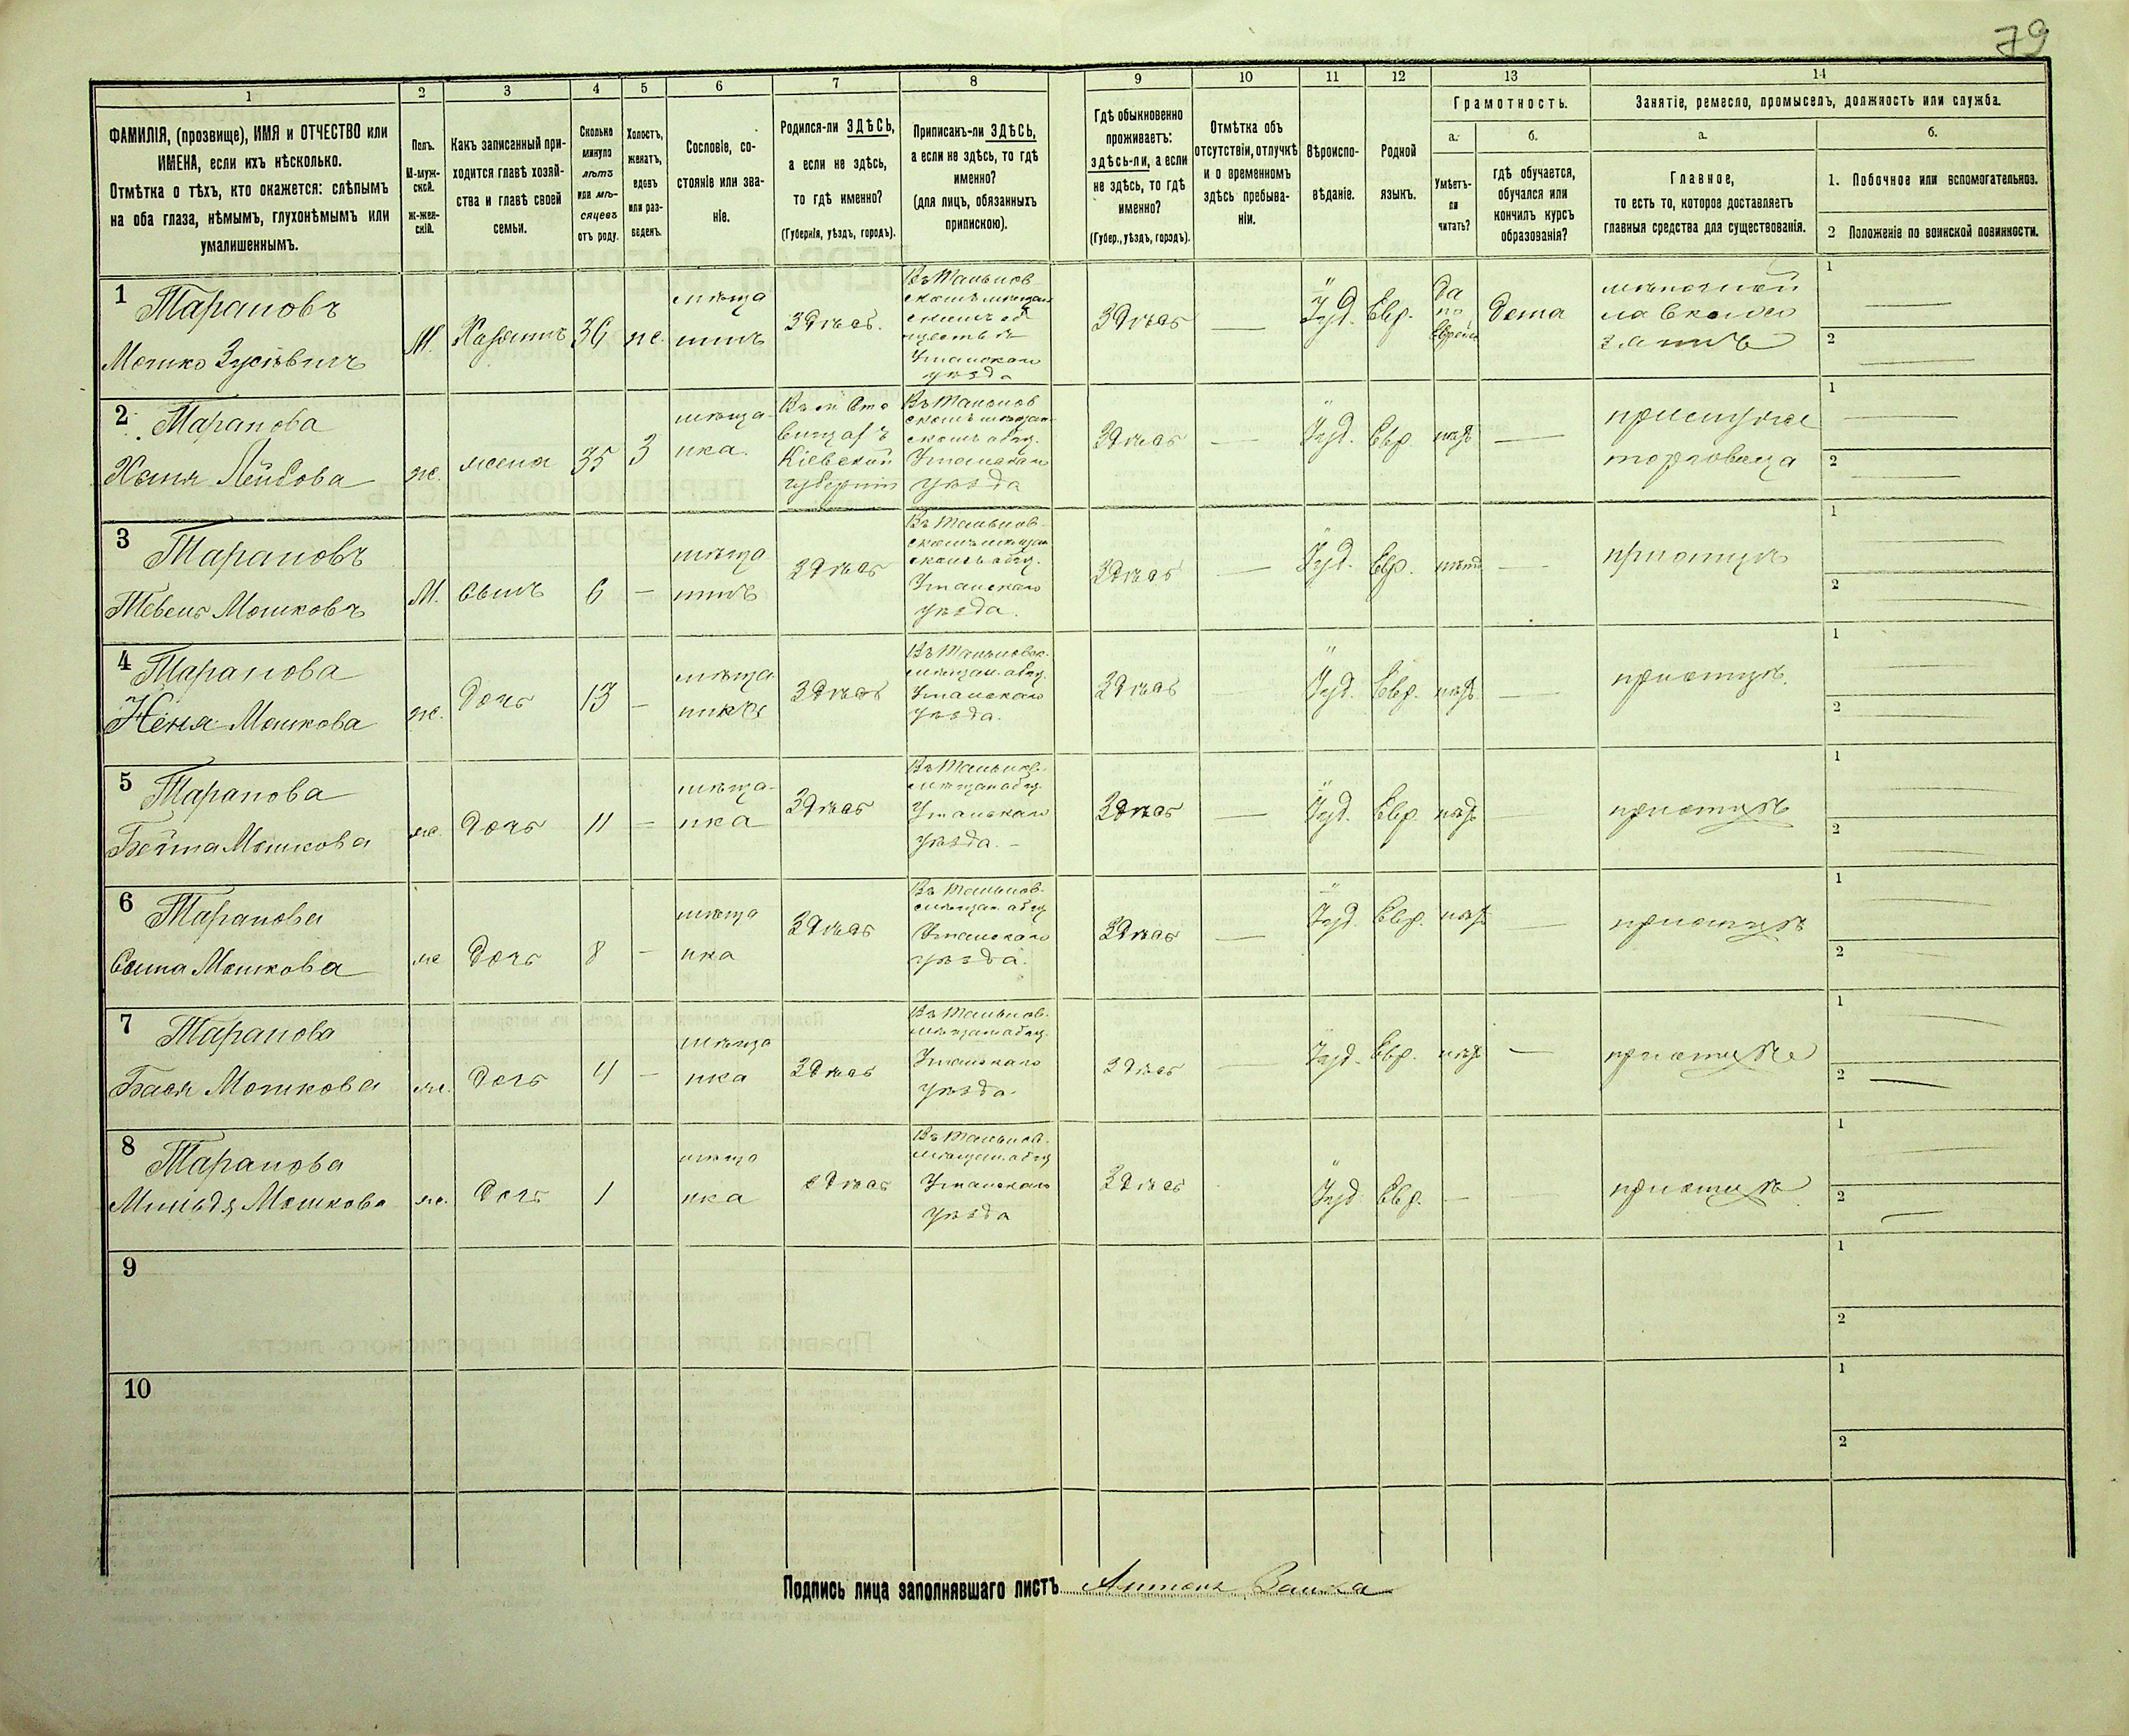 79
1 2 3 4 5 6 7 8 9 10 11 12 13 14
ФАМИЛІЯ, (прозвище), ИМЯ и ОТЧЕСТВО или
ИМЕНА, если ихъ нѣсколько.
Отмѣтка о тѣхъ, кто окажется: слѣпымъ
на оба глаза, нѣмымъ, глухонѣмымъ или
умалишеннымъ.
Полъ.
М-муж-
ской.
ж-жен-
скій.
Какъ записанный при-
ходится главѣ хозяй-
ства и главѣ своей
семьи.
Сколько
минуло
лѣтъ
или мѣ-
сяцевъ
отъ роду.
Холостъ,
женатъ,
вдовъ
или раз-
веденъ.
Сословіе, со-
стояніе или зва-
ніе.
Родился-ли ЗДѢСЬ,
а если не здѣсь,
то гдѣ именно?
(Губернія, уѣздъ, городъ).
Приписанъ-ли ЗДѢСЬ,
а если не здѣсь, то гдѣ
именно?
(для лицъ, обязанныхъ
припискою).
Гдѣ обыкновенно
проживаетъ:
здѣсь-ли, а если
не здѣсь, то гдѣ
именно?
(Губер., уѣздъ, городъ).
Отмѣтка объ
отсутствіи, отлучкѣ
и о временномъ
здѣсь пребыва-
ніи.
Вѣроиспо-
вѣданіе.
Родной
языкъ.
Грамотность.
а.
Умѣетъ-
ли
читать?
б.
гдѣ обучается,
обучался или
кончилъ курсъ
образованія?
Занятіе, ремесло, промыселъ, должность или служба.
а.
Главное,
то есть то, которое доставляетъ
главныя средства для существованія.
б.
1. Побочное или вспомогательное.
2 Положеніе по воинской повинности.
1 Тарановъ
Мошко Зусевичъ
М. Хозяинъ 36 ж. мѣща
нинъ
Здѣсь.
Въ Тальнов
скомъ мѣщан
скомъ об
ществѣ
Уманскаго
уѣзда
Здѣсь — Іуд. Евр.
да
по
Еврейс
дома
лавкой
1
2
2 Таранова
Хання Лейбова
ж. жена 35 З мѣща-
нка.
Кіевской
губерніи
Въ Тальнов
скомъ мѣщан-
скомъ общ.
Уманскаго
уѣзда
Здѣсь — Іуд. Евр. нѣтъ —
при мужѣ
торговица
1
2
3 Тарановъ
Тевель Мошковъ
М. сынъ 6 — мѣща
нинъ
Здѣсь
Въ Тальнов-
скомъ мѣщан
скомъ общ.
Уманскаго
уѣзда.
Здѣсь — Іуд. Евр. нѣтъ —
при отцѣ
1
2
4 Таранова
Хеня Мошкова
ж. дочь 13 — мѣща
нка
Здѣсь
Въ Тальновск.
мѣщан. общ.
Уманскаго
уѣзда.
Здѣсь — Іуд. Евр. нѣтъ —
при отцѣ.
1
2
5 Таранова
Бейла Мошкова
ж. дочь 11 — мѣща-
нка
Здѣсь
Въ Тальнов.
мѣщан общ.
Уманскаго
уѣзда. —
Здѣсь — Іуд. Евр. нѣтъ —
при отцѣ
1
2
6 Таранова
Мошкова
ж дочь 8 — мѣща
нка
Здѣсь
Въ Тальнов-
мѣщан. общ
Уманскаго
уѣзда.
Здѣсь — Іуд. Евр. нѣтъ —
при отцѣ
1
2
7 Таранова
Бася Мошкова
ж. дочь 4 — мѣща
нка
Здѣсь
Въ Тальнов.
мѣщан общ.
Уманскаго
уѣзда.
Здѣсь — Іуд. Евр. нѣтъ —
при отцѣ
1
2
8 Таранова
Миндя Мошкова
ж. дочь 1 мѣща
нка
здѣсь
Въ Тальнов.
мѣщан. общ
Уманскаго
уѣзда
Здѣсь Іуд Евр. — —
при отцѣ
1
2
9
1
2
10
1
2
Подпись лица заполнявшаго листъ Антонъ